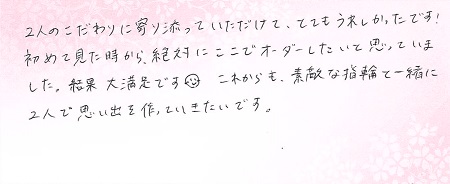 2人のこだわりに寄り添っていただけて、とてもうれしかったです!
初めて見た時から、絶対にここでオーダーしたいと思っていま
した。結果 大満足です☺ これからも、素敵な指輪と一緒に
2人で思い出を作っていきたいです。